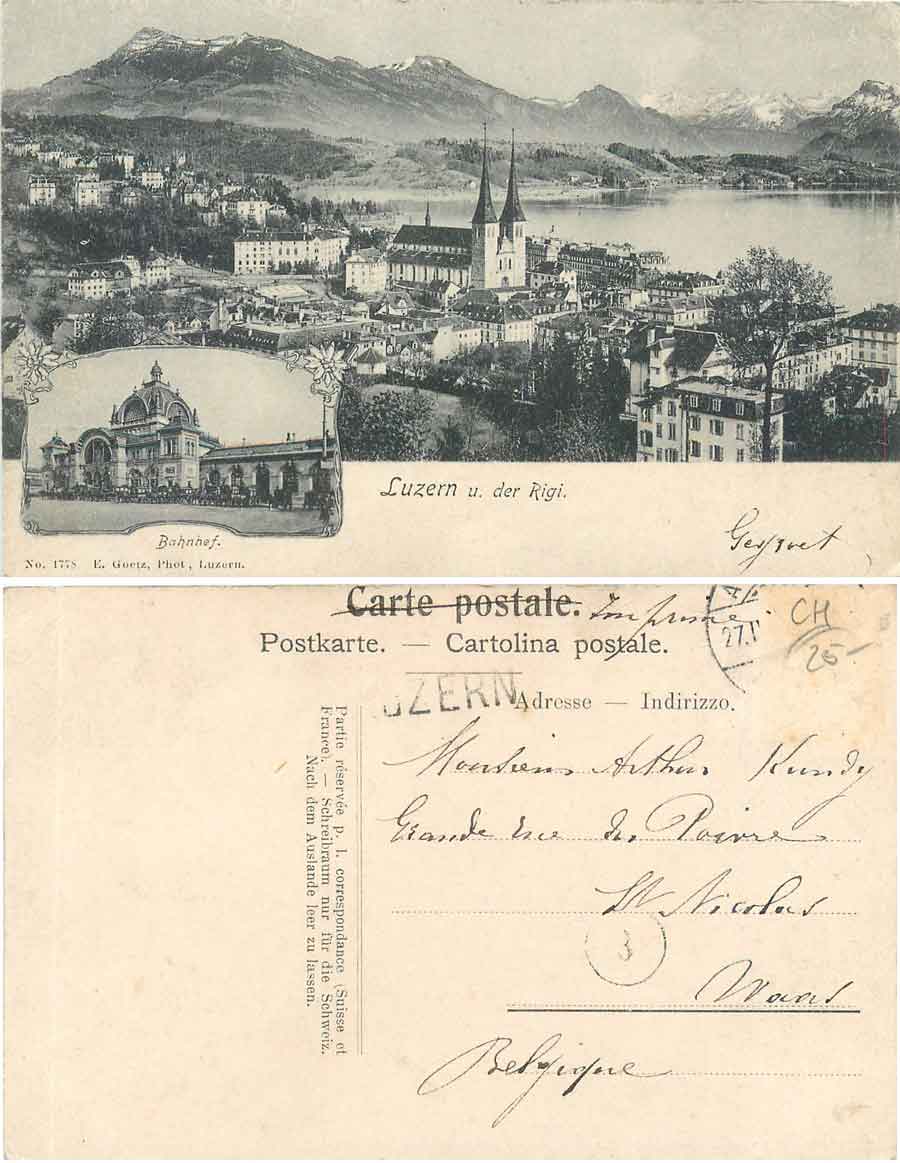 Luzern u. der Rigi.
Bahnhof.
No. 1778 E. Goetz, Phot., Luzern.
Carte postale. Imprimé
Postkarte. — Cartolina postale.
27.
CH
25-
UZERN
Adresse — Indirizzo.
Partie réservée p. l. correspondance (Suisse et
France). — Schreibraum nur für die Schweiz.
Nach dem Auslande leer zu lassen.
Monsieur Arthur
Grande rue du Poivre
St Nicolas
3
Waas
Belgique